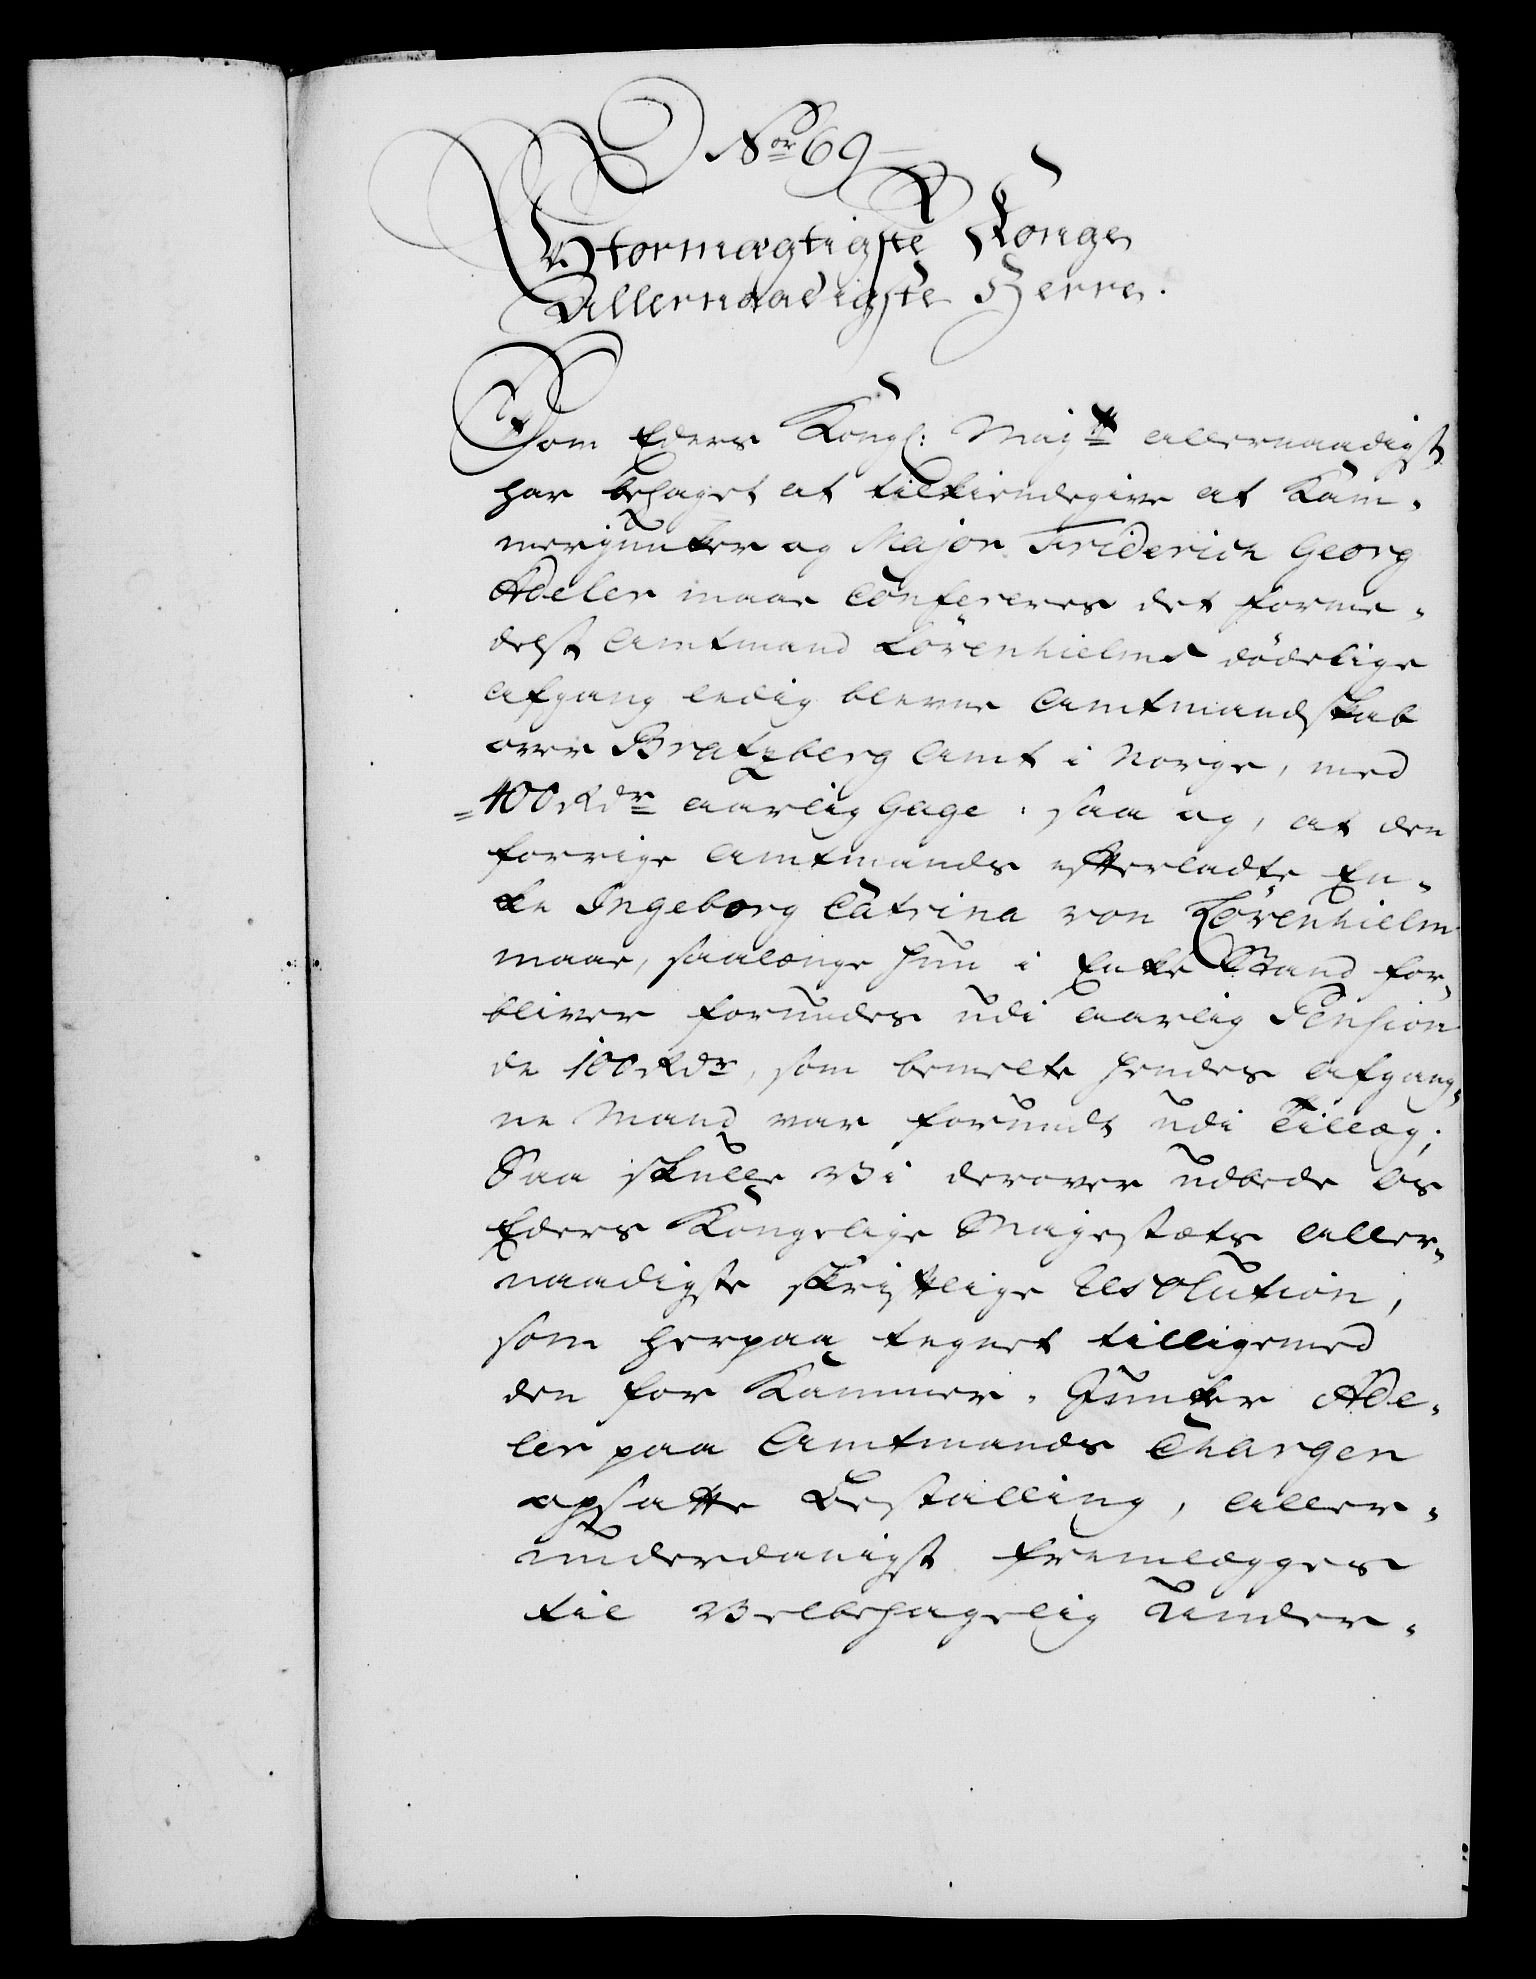 No:69
Stormægtigste Konge
Allernaadigste Herre.
Som Eders Kongl: Maj:tt allernaadigst
har behaget at tilkiendegive at Kam-
merjunker og Major Friderich Georg
Adeler maae Confereres det forme-
delst Amtmand Lövenhielms dödelige
afgang ledig blevne Amtmandskab
over Bratzberg Amt i Norge, med
400 Rdr aarlig Gage: saa og, at den
forrige Amtmands efterladte En-
ke Ingeborg Catrina von Lövenhielm
maae, saalænge hun i Enke Stand for-
bliver forundes udi aarlig Pension
de 100 Rdr, som bemelte hendes afgang-
ne Mand var forundt udi Tillæg;
Saa skulle Vi derover udbede os
Eders Kongelige Majestæts aller-
naadigste skriftlige Resolution,
som herpaa tegnet tilligemed
den for Kammer-Junker Ade-
ler paa Amtmands Chargen
opsatte Bestalling, aller-
underdanigst fremlægges
til Velbehagelig Under-